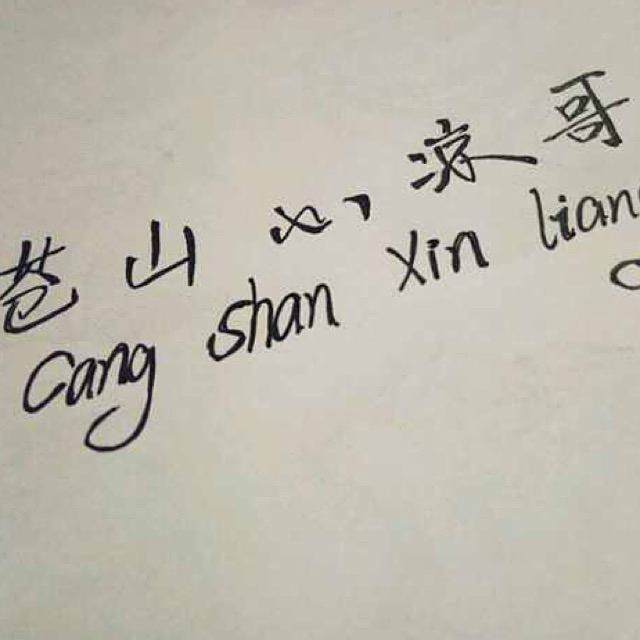 苍山心凉哥
Cang shan Xin liang